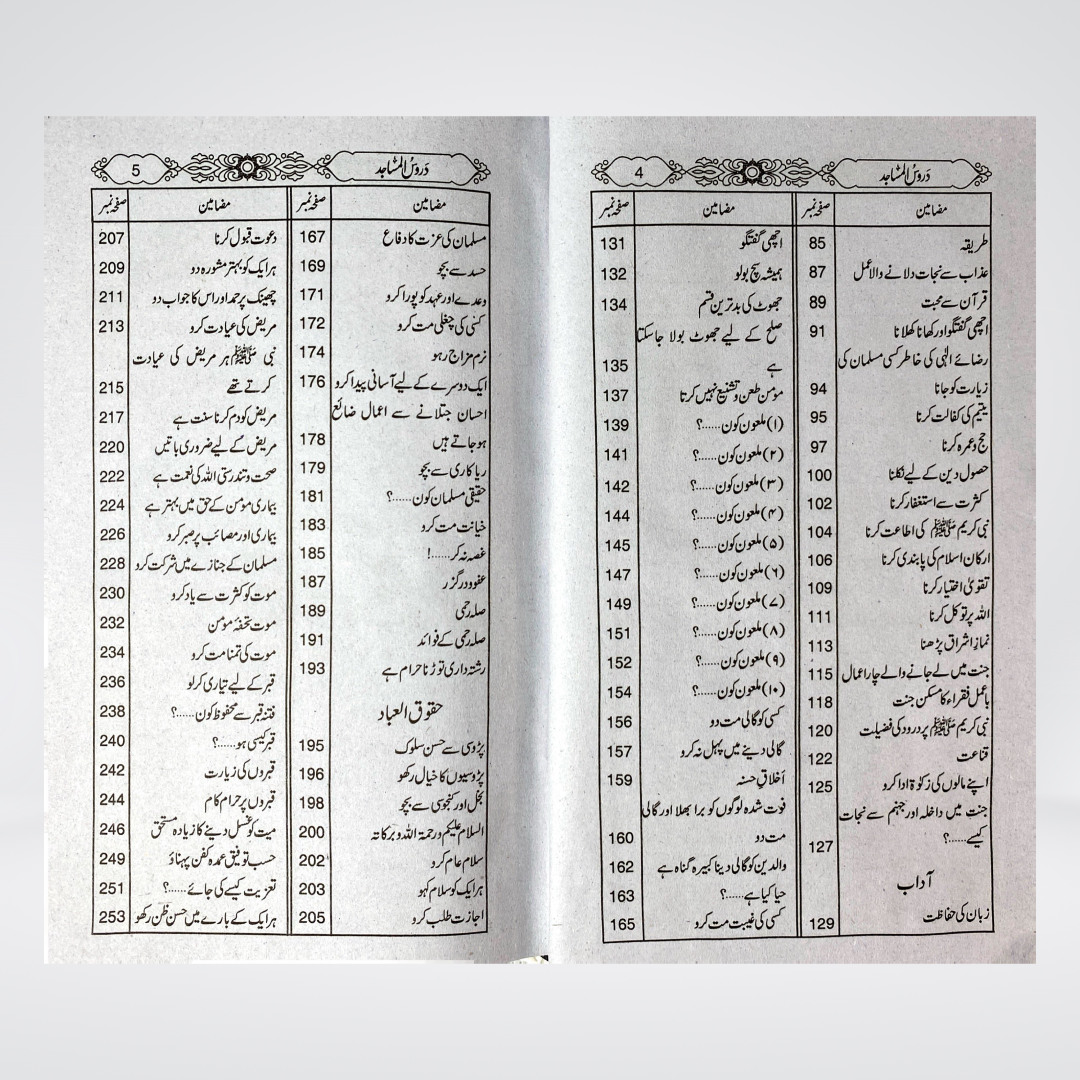 دروس المساجد
4
مضامین صفحہ نمبر
طریقہ 85
عذاب سے نجات دلانے والا عمل 87
قرآن سے محبت 89
اچھی گفتگو اور کھانا کھلانا 91
رضائے الٰہی کی خاطر کسی مسلمان کی
زیارت کو جانا 94
یتیم کی کفالت کرنا 95
حج و عمرہ کرنا 97
حصول دین کے لیے نکلنا 100
کثرت سے استغفار کرنا 102
نبی کریم ﷺ کی اطاعت کرنا 104
ارکان اسلام کی پابندی کرنا 106
تقویٰ اختیار کرنا 109
اللہ پر توکل کرنا 111
نماز اشراق پڑھنا 113
جنت میں لے جانے والے چار اعمال 115
باعمل فقراء کا مسکن جنت 118
نبی کریم ﷺ پر درود کی فضیلت 120
قناعت 122
اپنے مالوں کی زکوٰۃ ادا کرو 125
جنت میں داخلہ اور جہنم سے نجات
کیسے.....؟ 127
آداب
زبان کی حفاظت 129
مضامین صفحہ نمبر
اچھی گفتگو 131
ہمیشہ سچ بولو 132
جھوٹ کی بدترین قسم 134
صلح کے لیے جھوٹ بولا جا سکتا
ہے 135
مومن طعن و تشنیع نہیں کرتا 137
(۱) ملعون کون.....؟ 139
(۲) ملعون کون.....؟ 141
(۳) ملعون کون.....؟ 142
(۴) ملعون کون.....؟ 144
(۵) ملعون کون.....؟ 145
(۶) ملعون کون.....؟ 147
(۷) ملعون کون.....؟ 149
(۸) ملعون کون.....؟ 151
(۹) ملعون کون.....؟ 152
(۱۰) ملعون کون.....؟ 154
کسی کو گالی مت دو 156
گالی دینے میں پہل نہ کرو 157
اخلاق حسنہ 159
فوت شدہ لوگوں کو برا بھلا اور گالی
مت دو 160
والدین کو گالی دینا کبیرہ گناہ ہے 162
حیا کیا ہے.....؟ 163
کسی کی غیبت مت کرو 165
دروس المساجد
5
مضامین صفحہ نمبر
مسلمان کی عزت کا دفاع 167
حسد سے بچو 169
وعدے اور عہد کو پورا کرو 171
کسی کی چغلی مت کرو 172
نرم مزاج رہو 174
ایک دوسرے کے لیے آسانی پیدا کرو 176
احسان جتلانے سے اعمال ضائع
ہو جاتے ہیں 178
ریا کاری سے بچو 179
حقیقی مسلمان کون.....؟ 181
خیانت مت کرو 183
غصہ نہ کر.....! 185
عفو و درگزر 187
صلہ رحمی 189
صلہ رحمی کے فوائد 191
رشتہ داری توڑنا حرام ہے 193
حقوق العباد
پڑوسی سے حسن سلوک 195
پڑوسیوں کا خیال رکھو 196
بخل اور کنجوسی سے بچو 198
السلام علیکم ورحمۃ اللہ وبرکاتہ 200
سلام عام کرو 202
ہر ایک کو سلام کہو 203
اجازت طلب کرو 205
مضامین صفحہ نمبر
دعوت قبول کرنا 207
ہر ایک کو بہتر مشورہ دو 209
چھینک پر حمد اور اس کا جواب دو 211
مریض کی عیادت کرو 213
نبی ﷺ ہر مریض کی عیادت
کرتے تھے 215
مریض کو دم کرنا سنت ہے 217
مریض کے لیے ضروری باتیں 220
صحت و تندرستی اللہ کی نعمت ہے 222
بیماری مومن کے حق میں بہتر ہے 224
بیماری اور مصائب پر صبر کرو 226
مسلمان کے جنازے میں شرکت کرو 228
موت کو کثرت سے یاد کرو 230
موت تحفۂ مومن 232
موت کی تمنا مت کرو 234
قبر کے لیے تیاری کر لو 236
فتنہ قبر سے محفوظ کون.....؟ 238
قبر کیسی ہو.....؟ 240
قبروں کی زیارت 242
قبروں پر حرام کام 244
میت کو غسل دینے کا زیادہ مستحق 246
حسب توفیق عمدہ کفن پہناؤ 249
تعزیت کیسے کی جائے.....؟ 251
ہر ایک کے بارے میں حسن ظن رکھو 253